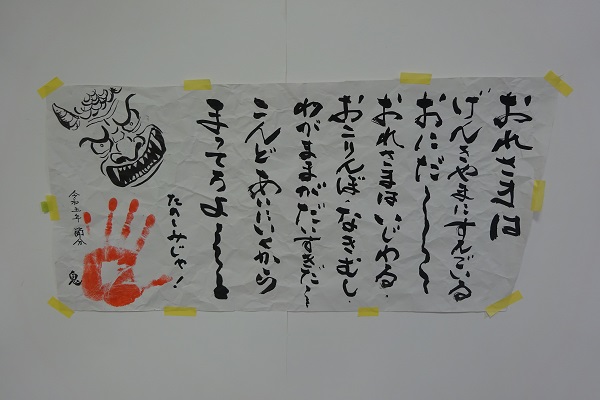 おれさまは
げんきやまにすんでいる
おにだ〜〜〜
おれさまはいじわる・
おこりんぼ・なきむし
わがままがだいすきだ〜〜
こんどあいにいくから
まってろよ〜〜〜
たのしみじゃ！
令和五年 節分
鬼